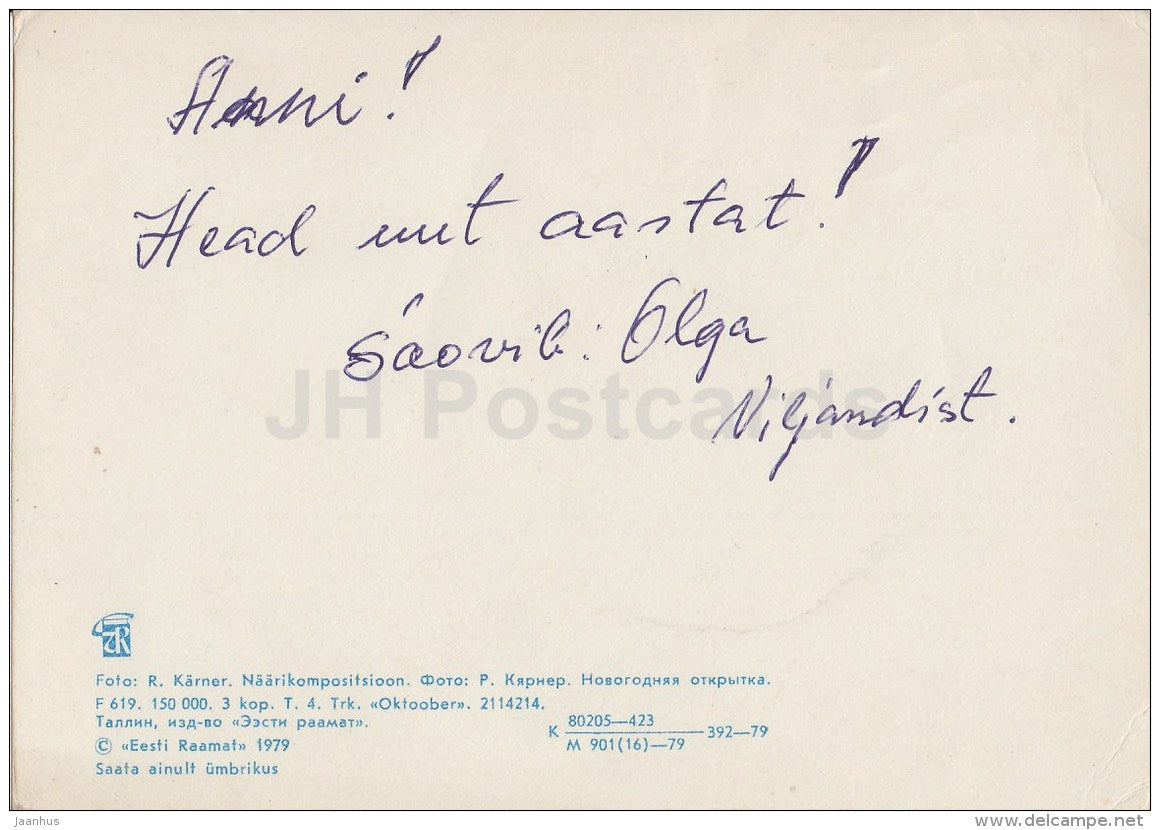 Anni!
Head uut aastat!
Soovib: Olga
Viljandist.
JH Postcards
Foto: R. Kärner. Näärikompositsioon. Фото: Р. Кярнер. Новогодняя открытка.
F 619. 150 000. 3 kop. T. 4. Trk. «Oktoober». 2114214.
Таллин, изд-во «Ээсти раамат».
К 80205—423 / М 901(16)—79 392—79
© «Eesti Raamat» 1979
Saata ainult ümbrikus
Jaanhus
www.delcampe.net